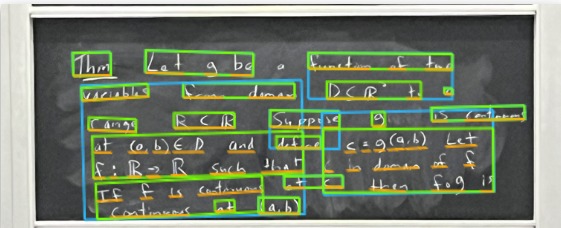 Thm Let g be a function of two
variables from domain D ⊂ ℝ² to
range R ⊂ ℝ Suppose g is continuous
at (a,b) ∈ D and define c = g(a,b) Let
f: ℝ → ℝ such that c in domain of f
If f is continuous at c then f∘g is
continuous at (a,b)